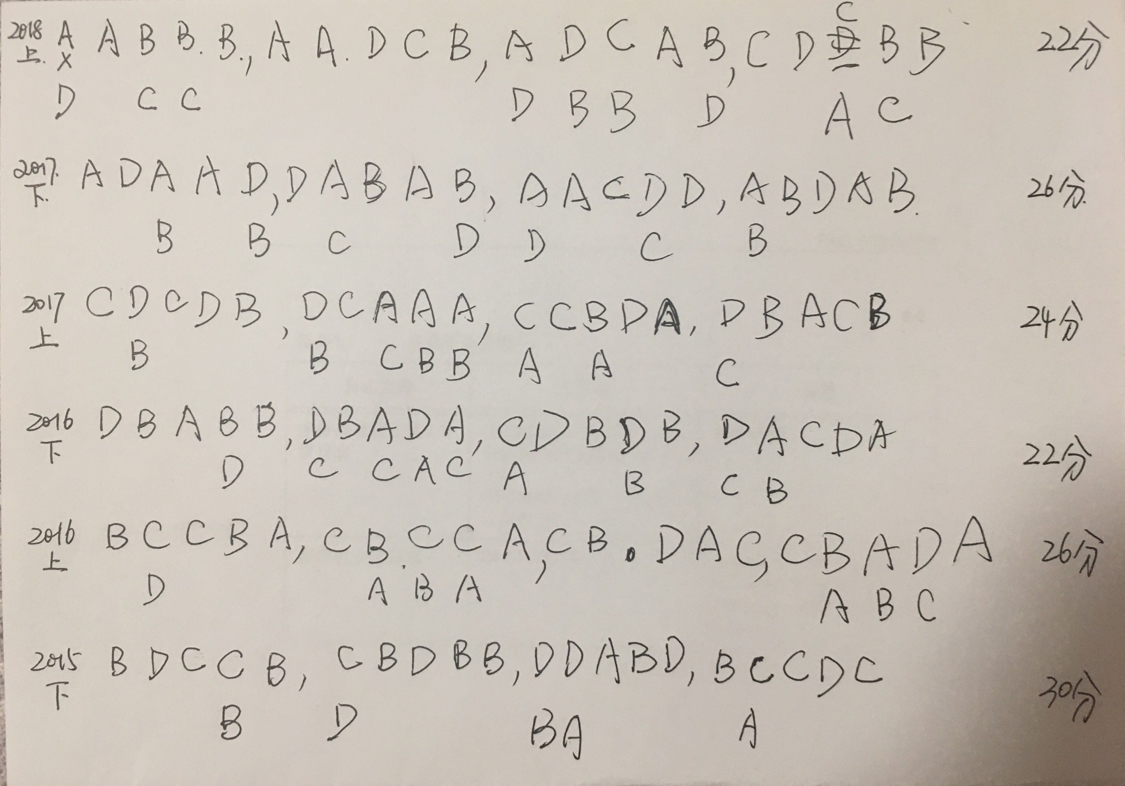 2018上. A A B B. B., A A. D C B, A D C A B, C D D B B 22分
× C
D C C D B B D A C
2017.下. A D A A D, D A B A B, A A C D D, A B D A B. 26分.
B B C D D C B
2017上 C D C D B, D C A A A, C C B D A, D B A C B 24分
B B C B B A A C
2016下 D B A B B, D B A D A, C D B D B, D A C D A 22分
D C C A C A B C B
2016上 B C C B A, C B. C C A, C B . D A C, C B A D A 26分
D A B A A B C
2015下 B D C C B, C B D B B, D D A B D, B C C D C 30分
B D B A A